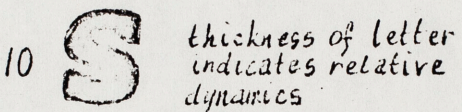 10 S thickness of letter
indicates relative
dynamics